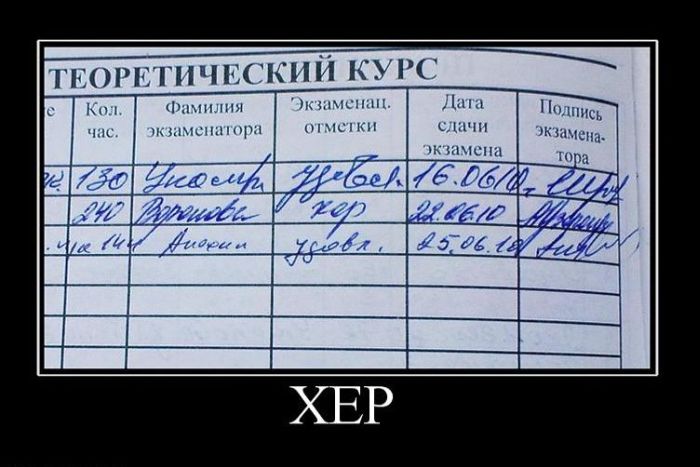 ТЕОРЕТИЧЕСКИЙ КУРС
Кол. час. Фамилия экзаменатора Экзаменац. отметки Дата сдачи экзамена Подпись экзамена- тора
130 удовл. 16.06.10
240 Воронова хор 22.06.10
14 Анохин удовл. 25.06.10
ХЕР